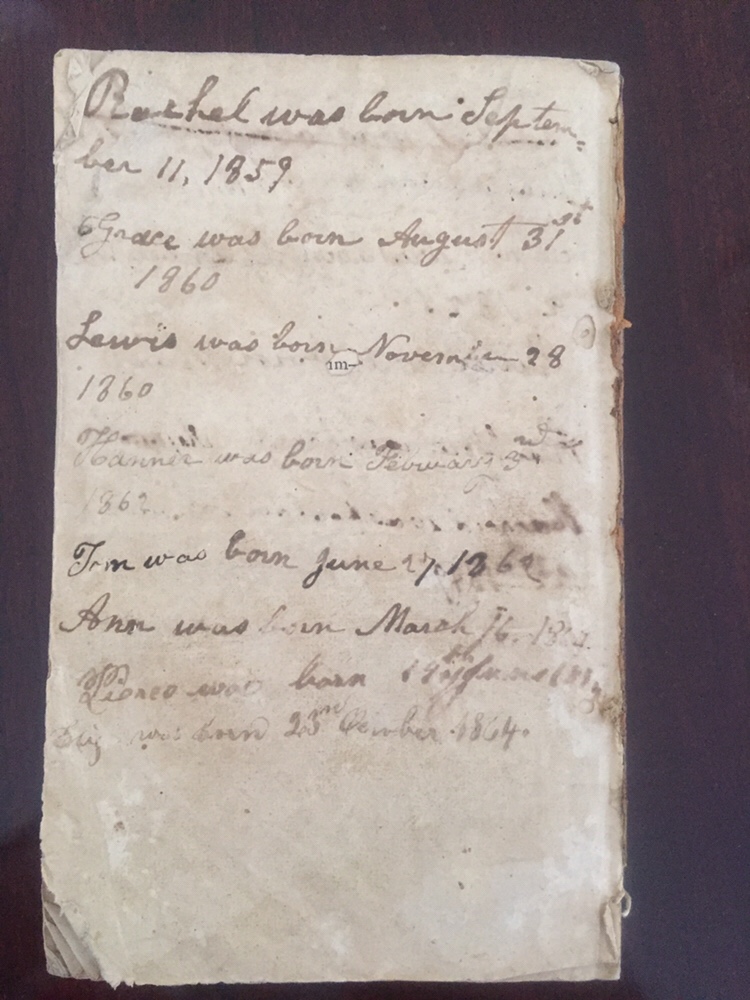 Rachel was born Septem=
ber 11, 1859.
Grace was born August 31st
1860
Lewis was born November 28
im-
1860
Hanner was born February 3rd
1862
Tom was born June 27, 1862
Ann was born March 16,
was born 19th June
was born 23rd 1864.